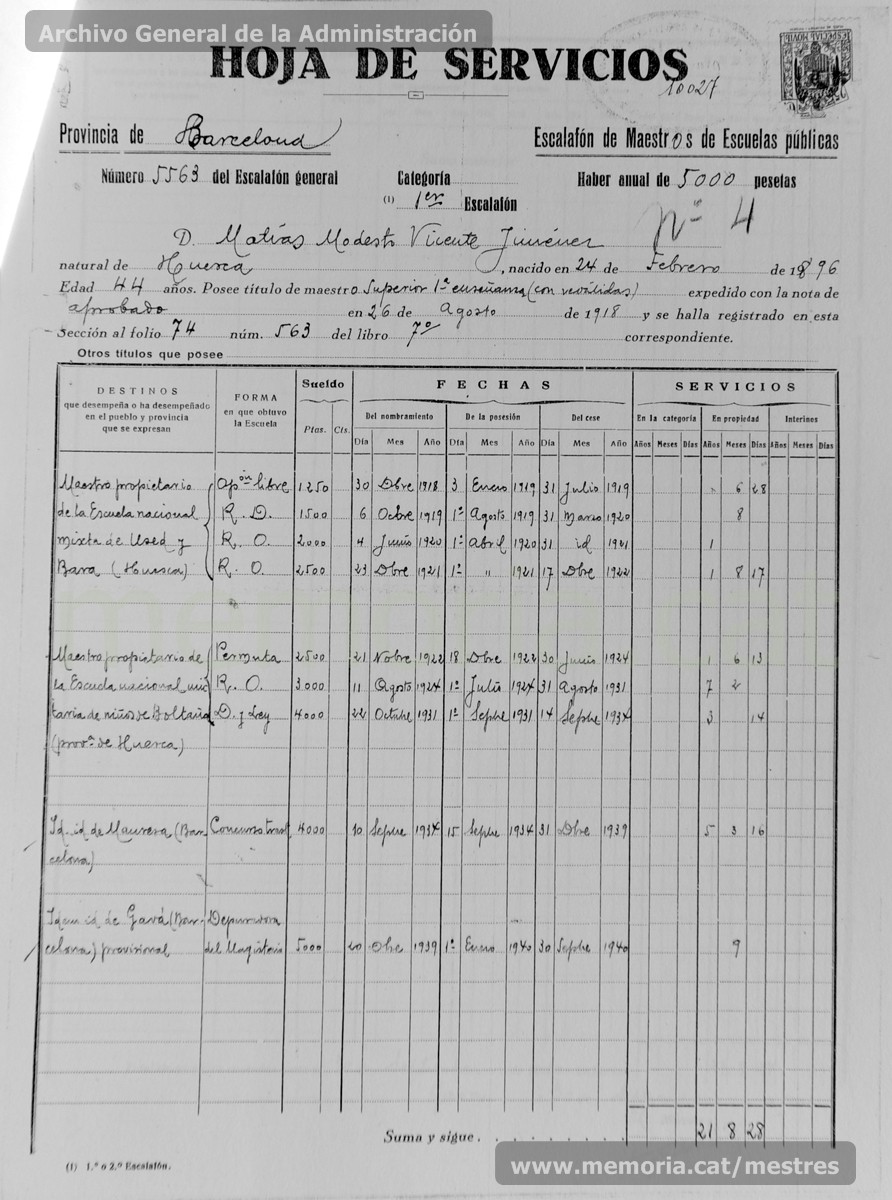 Archivo General de la Administración
HOJA DE SERVICIOS
10027
Provincia de Barcelona
Escalafón de Maestros de Escuelas públicas
Número 5563 del Escalafón general Categoría Haber anual de 5000 pesetas
(1) 1er Escalafón
Nº 4
D. Matías Modesto Vicente Jiménez
natural de Huesca, nacido en 24 de Febrero de 1896
Edad 44 años. Posee título de maestro Superior 1ª enseñanza (con reválidas) expedido con la nota de
aprobado en 26 de Agosto de 1918 y se halla registrado en esta
Sección al folio 74 núm. 563 del libro 7º correspondiente.
Otros títulos que posee
DESTINOS que desempeña o ha desempeñado en el pueblo y provincia que se expresan FORMA en que obtuvo la Escuela Sueldo FECHAS SERVICIOS
Del nombramiento De la posesión Del cese En la categoría En propiedad Interinos
Ptas. Cts. Día Mes Año Día Mes Año Día Mes Año Años Meses Días Años Meses Días Años Meses Días
Maestro propietario Opón libre 1250 30 Dbre 1918 3 Enero 1919 31 Julio 1919 6 28
de la Escuela nacional R. D. 1500 6 Octbre 1919 1º Agosto 1919 31 Marzo 1920 8
mixta de Used y R. O. 2000 4 Junio 1920 1º Abril 1920 31 id 1921 1
Bara (Huesca) R. O. 2500 23 Dbre 1921 1º " 1921 17 Dbre 1922 1 8 17
Maestro propietario de Permuta 2500 21 Nobre 1922 18 Dbre 1922 30 Junio 1924 1 6 13
la Escuela nacional uni R. O. 3000 11 Agosto 1924 1º Julio 1924 31 Agosto 1931 7 2
taria de niños de Boltaña D. y Ley 4000 22 Octubre 1931 1º Sepbre 1931 14 Sepbre 1934 3 14
(provª de Huesca)
Id. id de Manresa (Bar Concurso trasl 4000 10 Sepbre 1934 15 Sepbre 1934 31 Dbre 1939 5 3 16
celona)
Idem id de Gavá (Bar- Depuradora
celona) provisional del Magisterio 5000 20 Dbre 1939 1º Enero 1940 30 Sepbre 1940 9
Suma y sigue 21 8 28
(1) 1.º o 2.º Escalafón.
www.memoria.cat/mestres